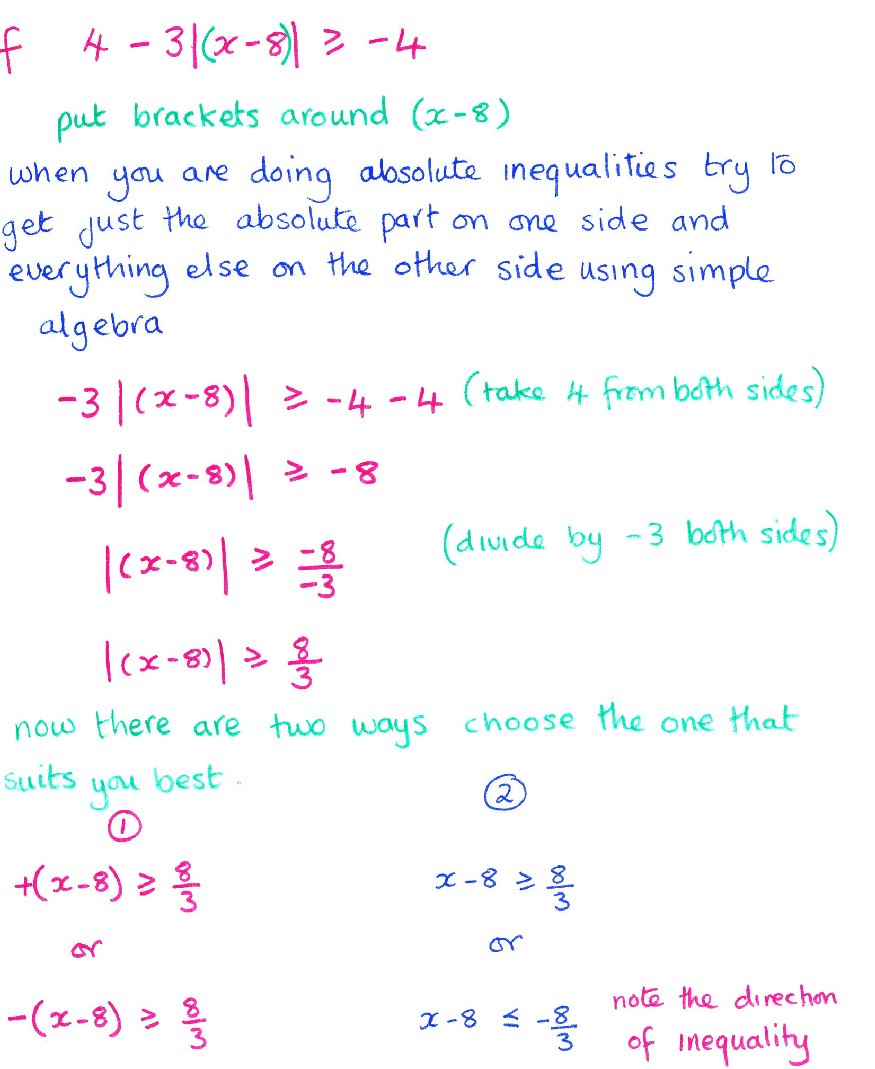 f 4 - 3|(x-8)| ≥ -4
put brackets around (x-8)
when you are doing absolute inequalities try to
get just the absolute part on one side and
everything else on the other side using simple
algebra
-3|(x-8)| ≥ -4 -4 (take 4 from both sides)
-3|(x-8)| ≥ -8
|(x-8)| ≥ -8/-3 (divide by -3 both sides)
|(x-8)| ≥ 8/3
now there are two ways choose the one that
suits you best.
① ②
+(x-8) ≥ 8/3 x-8 ≥ 8/3
or or
-(x-8) ≥ 8/3 x-8 ≤ -8/3 note the direction
of inequality